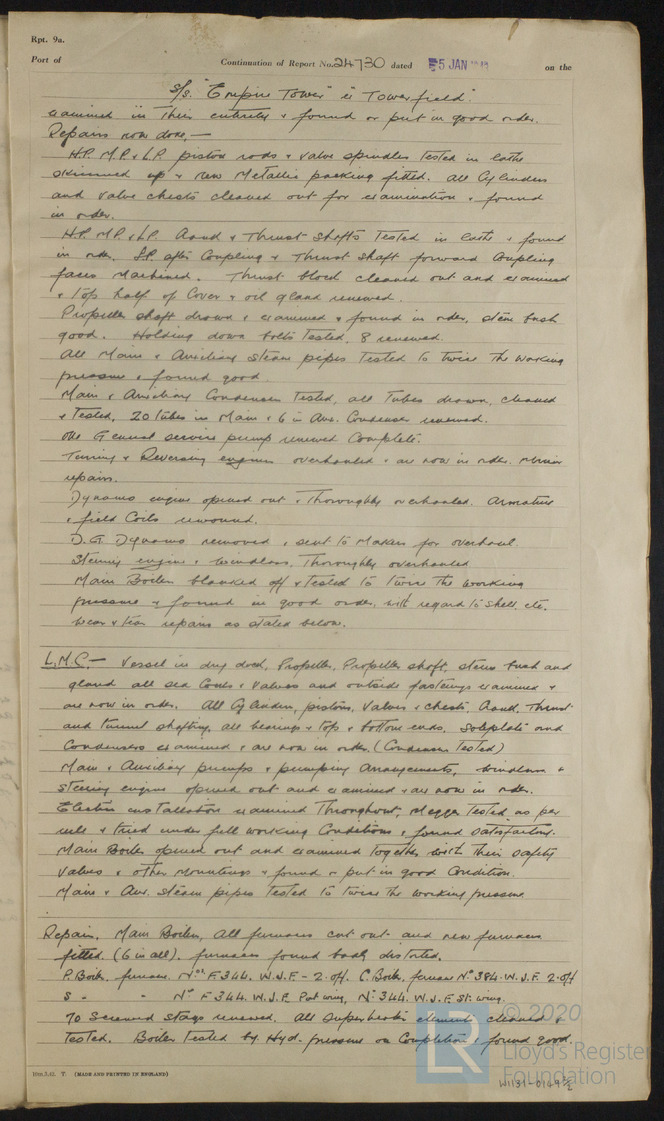 Rpt. 9a.
Port of
Continuation of Report No. 24730 dated 5 JAN on the
S/s. "Empire Tower" ex "Towerfield".
examined in their entirety & found or put in good order.
Repairs now done,—
H.P. M.P. & L.P. piston rods & valve spindles tested in lathe
skimmed up & new metallic packing fitted. All Cylinders
and valve chests cleaned out for examination & found
in order.
H.P. M.P. & L.P. Crank & Thrust shafts tested in lathe & found
in order. L.P. after Coupling & Thrust shaft forward Coupling
faces machined. Thrust block cleaned out and examined
& top half of cover & oil gland renewed.
Propeller shaft drawn & examined & found in order, stern bush
good. Holding down bolts tested, 8 renewed.
All Main & Auxiliary steam pipes tested to twice the working
pressure & found good.
Main & Auxiliary Condenser tested, all tubes drawn, cleaned
& tested, 20 tubes in Main & 6 in Aux. Condenser renewed.
One General service pump renewed complete.
Turning & Reversing engines overhauled & are now in order. Minor
repairs.
Dynamo engine opened out & thoroughly overhauled. Armature
& field coils rewound.
D.G. Dynamo removed & sent to Makers for overhaul
Steering engine & windlass. Thoroughly overhauled
Main Boilers blanked off & tested to twice the working
pressure & found in good order, with regard to shell, etc.
Wear & tear repairs as stated below.
L.M.C.— Vessel in dry dock, Propeller, Propeller shaft, stern bush and
gland all sea cocks & valves and outside fastenings examined &
are now in order. All Cylinders, pistons, valves & chests, Crank, Thrust
and tunnel shafting, all bearings & top & bottom ends, soleplate and
Condensers examined & are now in order. (Condenser tested)
Main & Auxiliary pumps & pumping arrangements, windlass &
steering engine opened out and examined & are now in order.
Electric installation examined throughout, Megger tested as per
rule & tried under full working conditions & found satisfactory.
Main Boilers opened out and examined together with their safety
valves & other mountings & found or put in good condition.
Main & Aux. steam pipes tested to twice the working pressure
Repairs. Main Boilers, All furnaces cut out and new furnaces
fitted (6 in all). furnaces found badly distorted.
P. Boiler, furnaces Nos. F344. W.J.F - 2 off. C. Boiler, furnaces No. 384. W.J.F. 2 off
S - - No. F344. W.J.F. Port wing, No. 344. W.J.F. St. wing.
70 Screwed stays renewed. All superheater elements cleaned &
tested. Boilers tested by Hyd. pressure on completion & found good.
10m.5.42. T. (MADE AND PRINTED IN ENGLAND)
© 2020
LR
Lloyd's Register
Foundation
W1131-0149 2/2